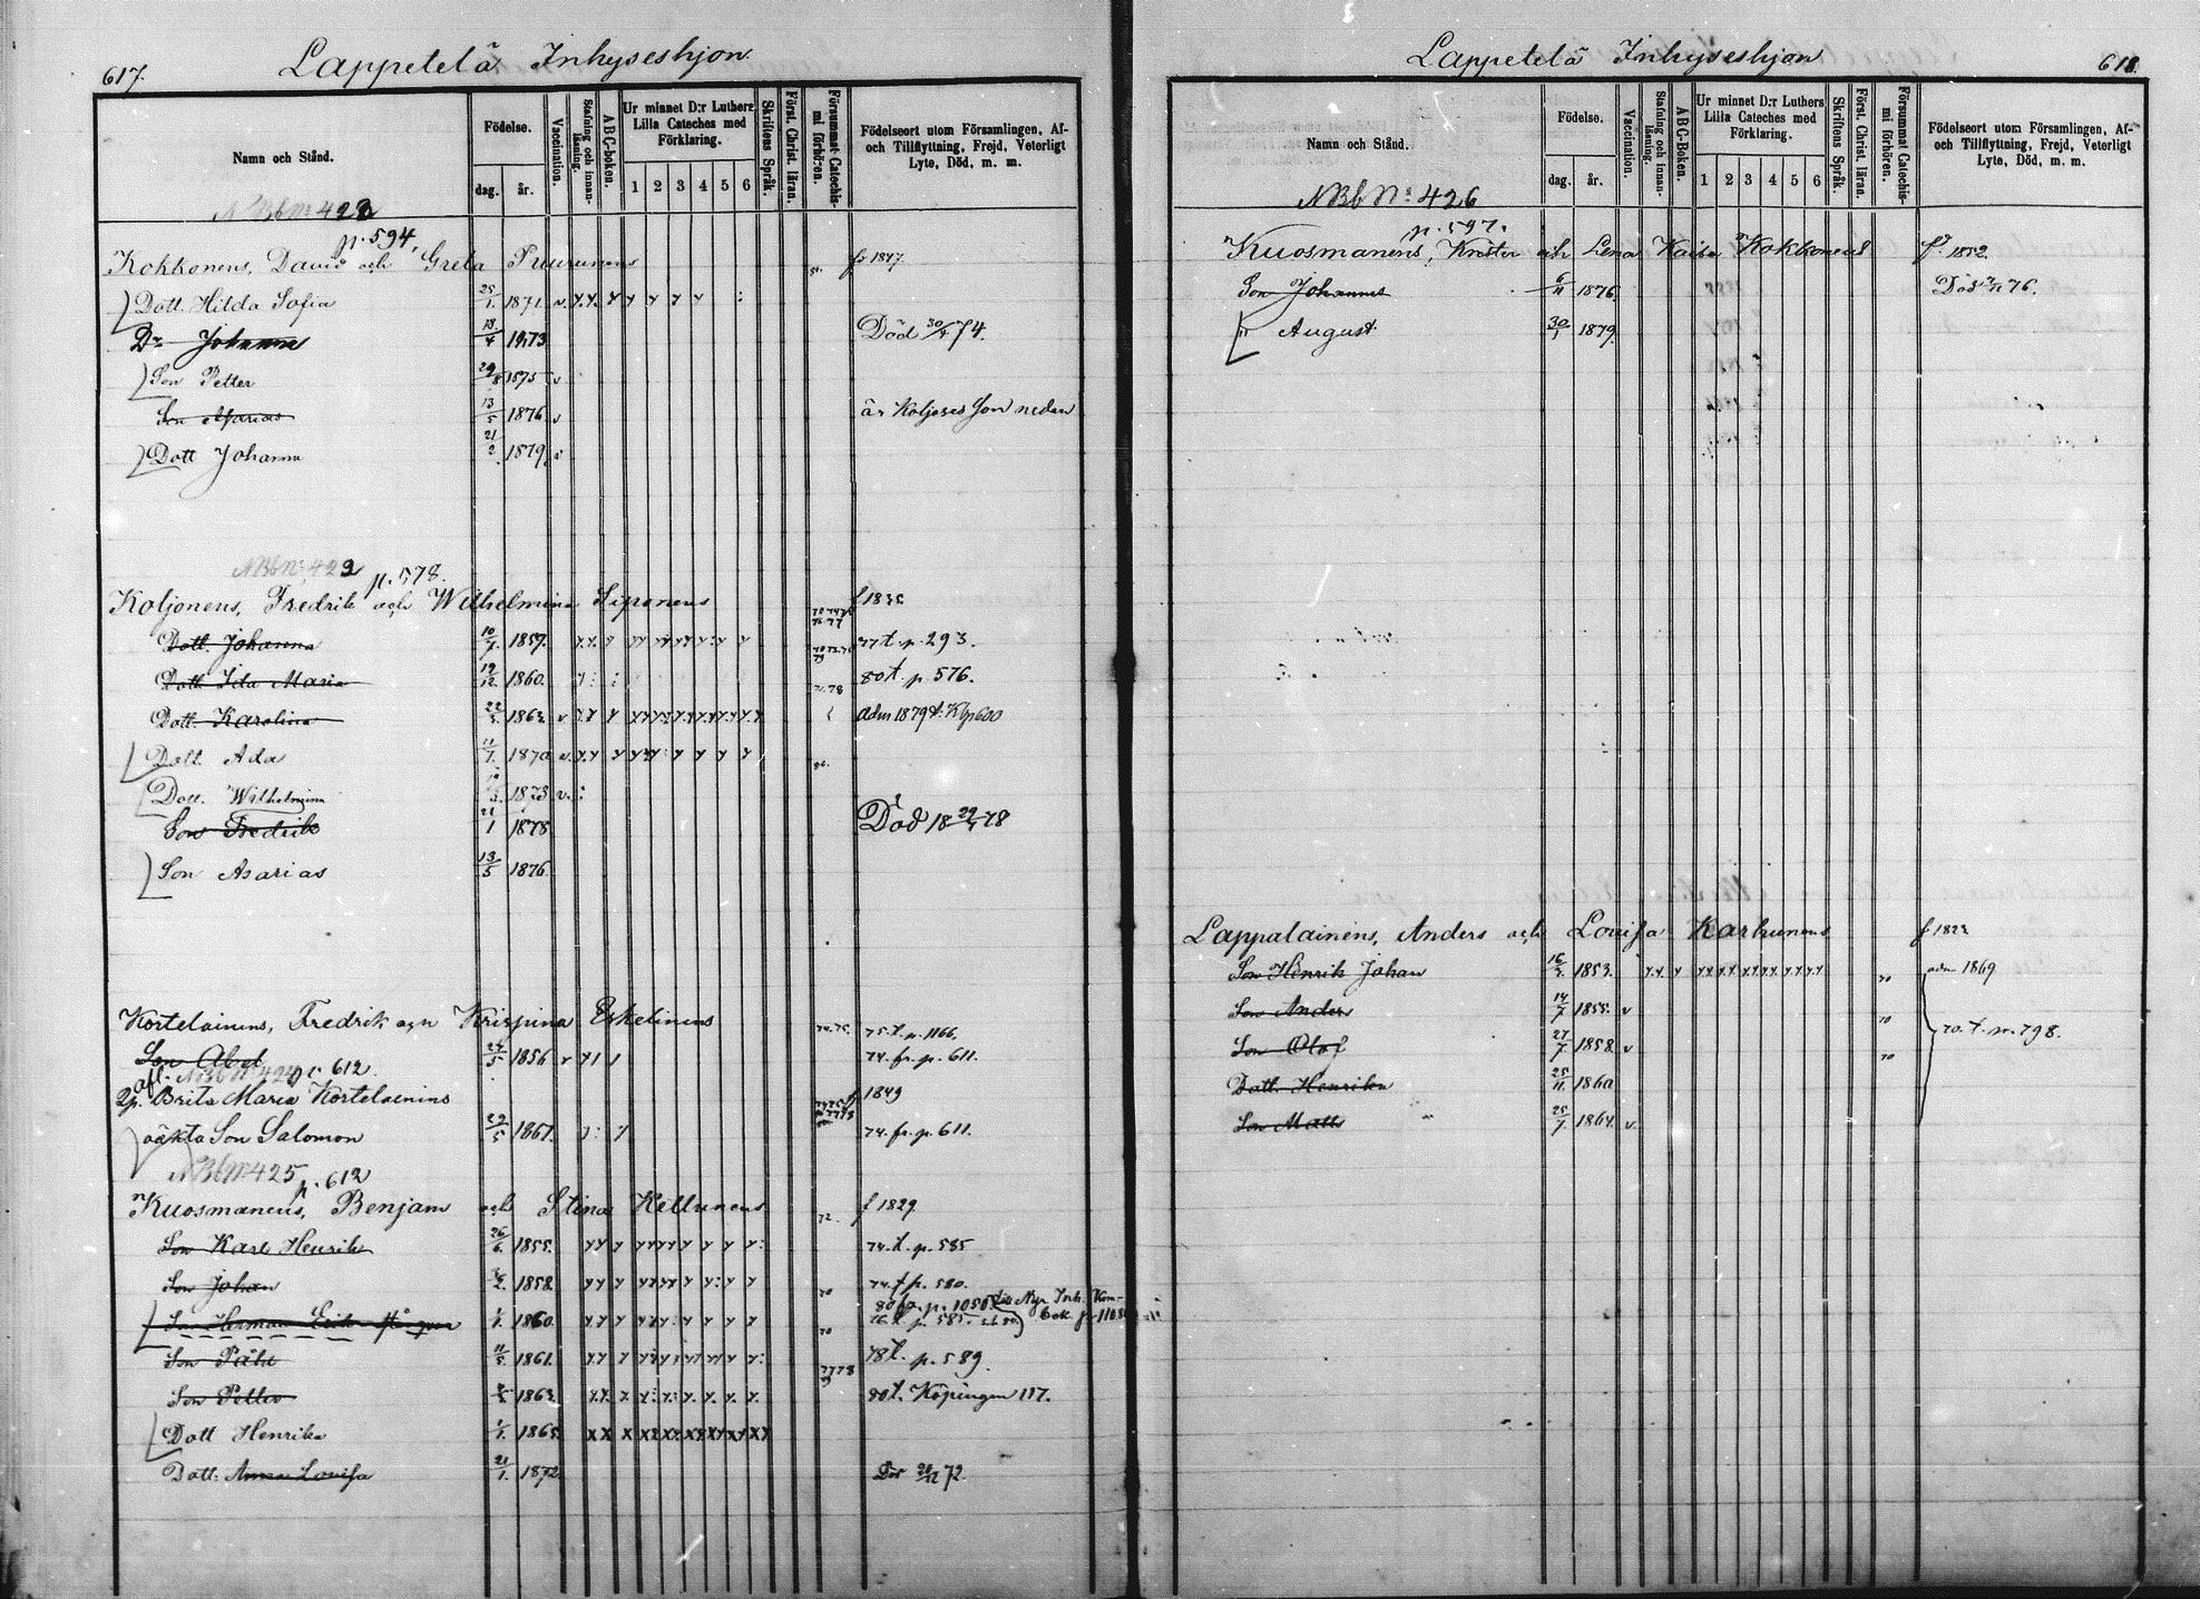 617.
Lappetelä Inhyseshjon.
Namn och Stånd.
Födelse.
dag. år.
Vaccination.
Stafning och innanläsning.
ABC-boken.
Ur minnet D:r Luthers Lilla Cateches med Förklaring.
1 2 3 4 5 6
Skriftens Språk.
Först. Christ. läran.
Försummat Catechismi förhören.
Födelseort utom Församlingen, Af- och Tillflyttning, Frejd, Veterligt Lyte, Död, m. m.
NBb No 422
p. 594.
Kokkonens, David och Greta Puurunens f 1847.
Dott. Hilda Sofia 25/1. 1871. v.
Dr Johanna 18/4 1873 Död 30/4 74.
Son Petter 29/8 1875 v
Son Asarias 13/5 1876 v är Koljoses Son nedan
Dott Johanna 21/2 1879
NBb No 422 p. 578.
Koljonens, Fredrik och Wilhelmina Liponens
Dott. Johanna 10/7. 1857. 77 t. p. 293.
Dott Ida Maria 19/12. 1860. 80 t. p 576.
Dott. Karolina 1863. v adm 1879 t. Kbp 600
Dott. Ada 11/7. 1870 v.
Dott. Wilhelmina 1873 v.
Son Fredrik 21/1 1878 Död 18 22/4 78
Son Asarias 13/5 1876.
Kortelainens, Fredrik och Krispina Eskelinens 74.75. 75. t. p. 1166.
Son Abel 1856 v 74. fr. p. 611.
afl. NBb No 424 p. 612.
Brita Maria Kortelainens f 1849
oäkta Son Salomon 1867. 74. fr. p. 611.
NBb No 425 p. 612
Kuosmanens, Benjam och Stina Kellunens 72. f 1829
Son Karl Henrik 26/6. 1855. 74. t. p. 585
Son Johan 1858. 70 74. t p. 580.
Son Herman 1/1. 1860. 70 80 fr. p. 1056
76 t p. 585.
Son Påhl 11/5. 1861. 77 78 78 t. p. 589.
Son Petter 1863. 80 t. Köpingen 117.
Dott Henrika 1/1. 1865.
Dott. Anna Lovisa 21/1. 1872 Dör 26/12 72.
Lappetelä Inhyseshjon
618.
Namn och Stånd.
Födelse.
dag. år.
Vaccination.
Stafning och innanläsning.
ABC-Boken.
Ur minnet D:r Luthers Lilla Cateches med Förklaring.
1 2 3 4 5 6
Skriftens Språk.
Först. Christ. läran.
Försummat Catechismi förhören.
Födelseort utom Församlingen, Af- och Tillflyttning, Frejd, Veterligt Lyte, Död, m. m.
NBb No 426
p. 597.
Kuosmanens, Krister och Lena Kaisa Kokkonens f. 1852.
Son Johannes 6/11 1876. Död 76.
" August. 30/1 1879.
Lappalainens, Anders och Lovisa Karhunens
Son Henrik Johan 1853. 70 adm 1869
Son Anders 14/7 1855. v 70
Son Olof 27/7 1858. v 70 70. t. p. 798.
Dott. Henrika 25/11. 1860
Son Matts 25/7. 1864. v.